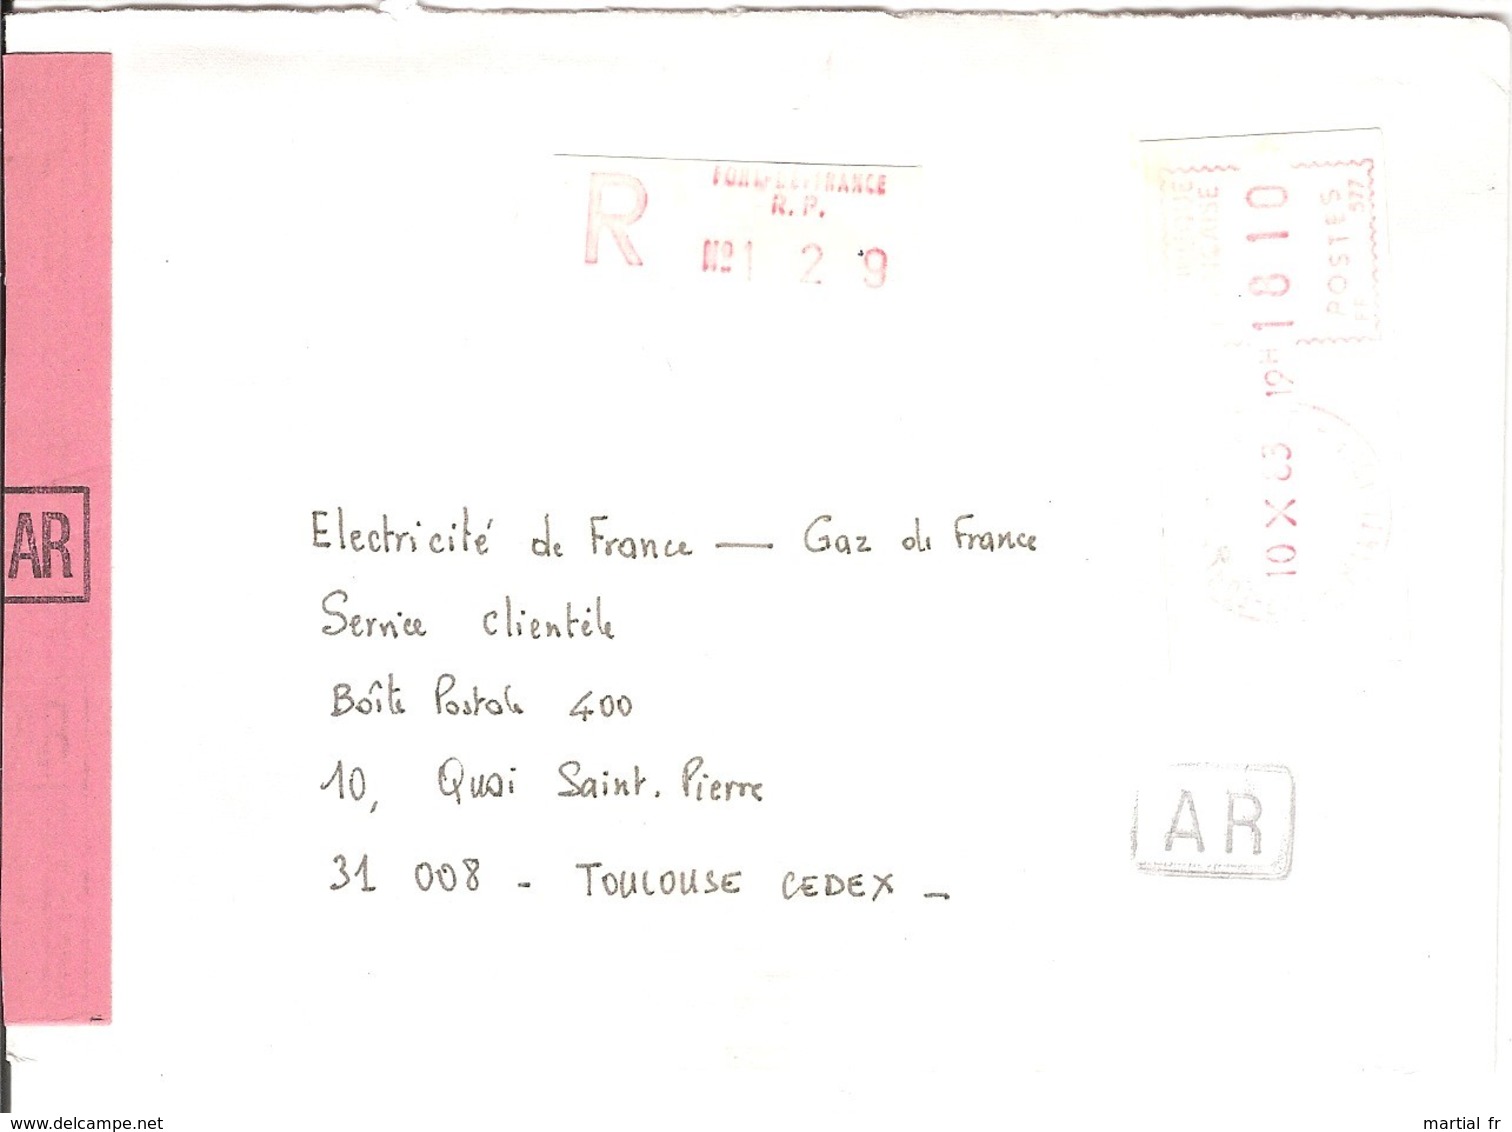 R
FORT-DE-FRANCE
R. P.
Nº1 2 9
POSTES
FF 577
1810
10 X 83 19H
AR
Electricité de France — Gaz de France
Service Clientèle
Boîte Postale 400
10, Quai Saint. Pierre
31 008 - TOULOUSE CEDEX -
AR
www.delcampe.net
martial fr